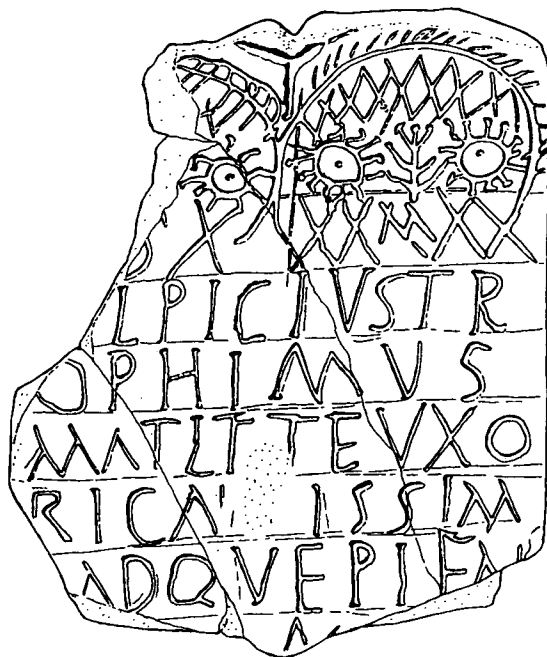 D M
LPICIVSTR
OPHIMVS
MATLTTEVXO
RICA ISSIM
ADQVEPIEN